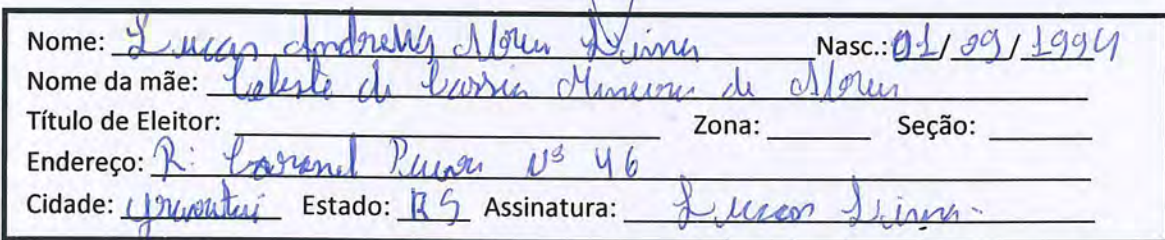 Nome: Lucas Andrews Lima Nasc.: 01/09/1994
Nome da mãe: Celeste de Cassia de
Título de Eleitor: Zona: Seção:
Endereço: R: Coronel Nº 46
Cidade: Gravataí Estado: RS Assinatura: Lucas Lima